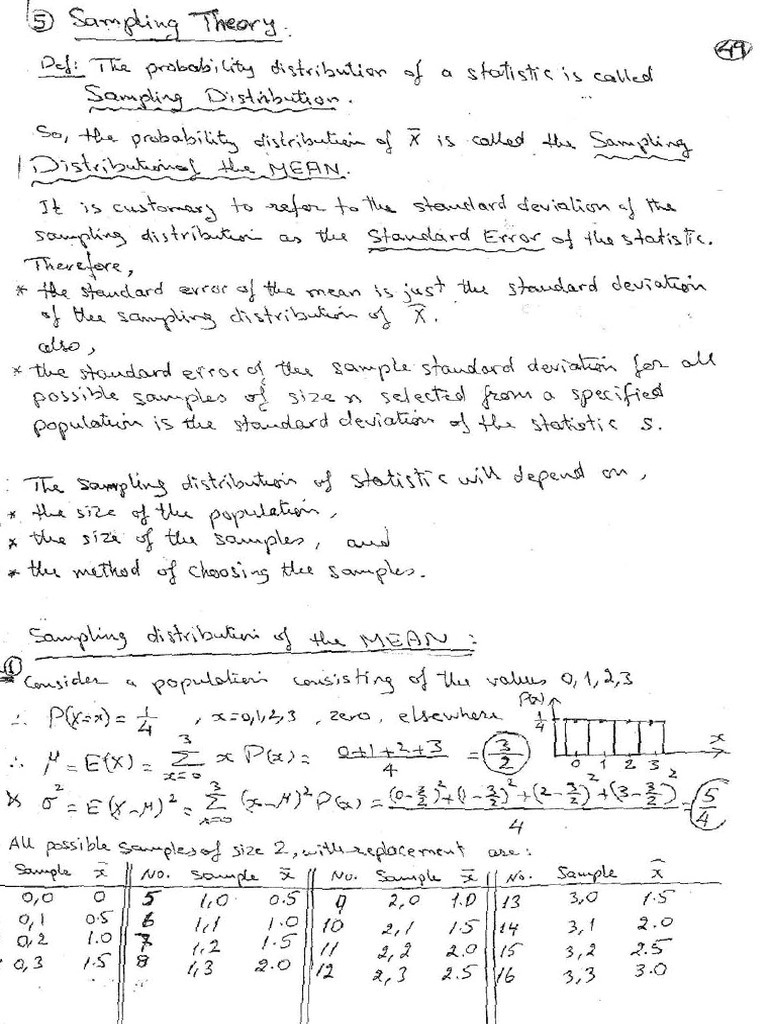 ⑤ Sampling Theory.
49
Def: The probability distribution of a statistic is called
Sampling Distribution.
So, the probability distribution of X̄ is called the Sampling
Distribution of the MEAN.
It is customary to refer to the standard deviation of the
sampling distribution as the Standard Error of the statistic.
Therefore,
* the standard error of the mean is just the standard deviation
of the sampling distribution of X̄.
also,
* the standard error of the sample standard deviation for all
possible samples of size n selected from a specified
population is the standard deviation of the statistic s.
The sampling distribution of statistic will depend on,
* the size of the population,
* the size of the samples, and
* the method of choosing the samples.
Sampling distribution of the MEAN:
① Consider a population consisting of the values 0, 1, 2, 3
∴ P(X=x) = 1/4 , x=0,1,2,3 , zero, elsewhere
P(x) 1/4 0 1 2 3 x
∴ μ = E(X) = Σ_{x=0}^{3} x P(x) = (0+1+2+3)/4 = 3/2
& σ² = E(X-μ)² = Σ_{x=0}^{3} (x-μ)² P(x) = ((0-3/2)²+(1-3/2)²+(2-3/2)²+(3-3/2)²)/4 = 5/4
All possible samples of size 2, with replacement are:
Sample x̄ No. Sample x̄ No. Sample x̄ No. Sample x̄
0,0 0 5 1,0 0.5 9 2,0 1.0 13 3,0 1.5
0,1 0.5 6 1,1 1.0 10 2,1 1.5 14 3,1 2.0
0,2 1.0 7 1,2 1.5 11 2,2 2.0 15 3,2 2.5
0,3 1.5 8 1,3 2.0 12 2,3 2.5 16 3,3 3.0